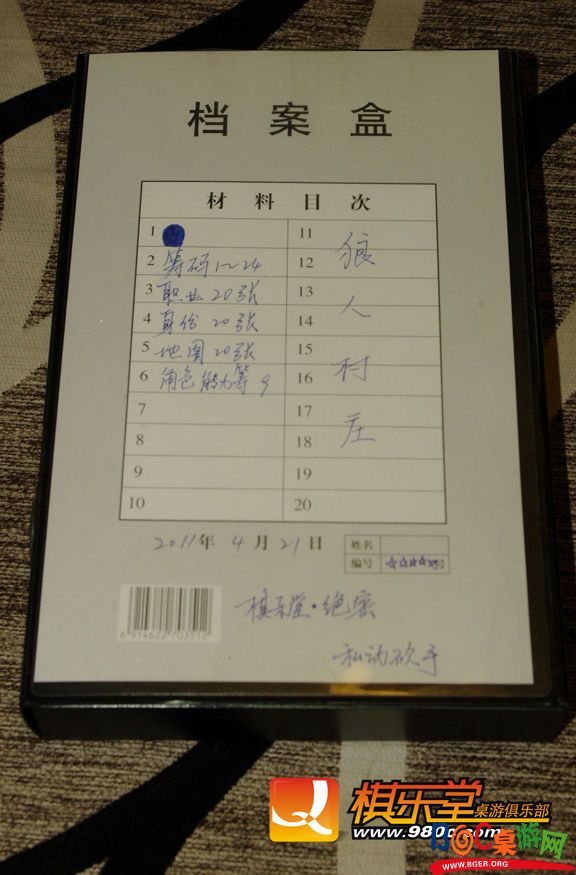 档案盒
材料目次
1
2 筹码1~24
3 职业20张
4 身份20张
5 地图20张
6 角色能力等9
7
8
9
10
11
12
13
14
15
16
17
18
19
20
狼人村庄
2011年4月21日
姓名
编号 ☆☆☆☆
6 914622 703512
棋乐堂·绝密
私动砍手
棋乐堂
桌游俱乐部
桌游网
WWW.BGER.ORG